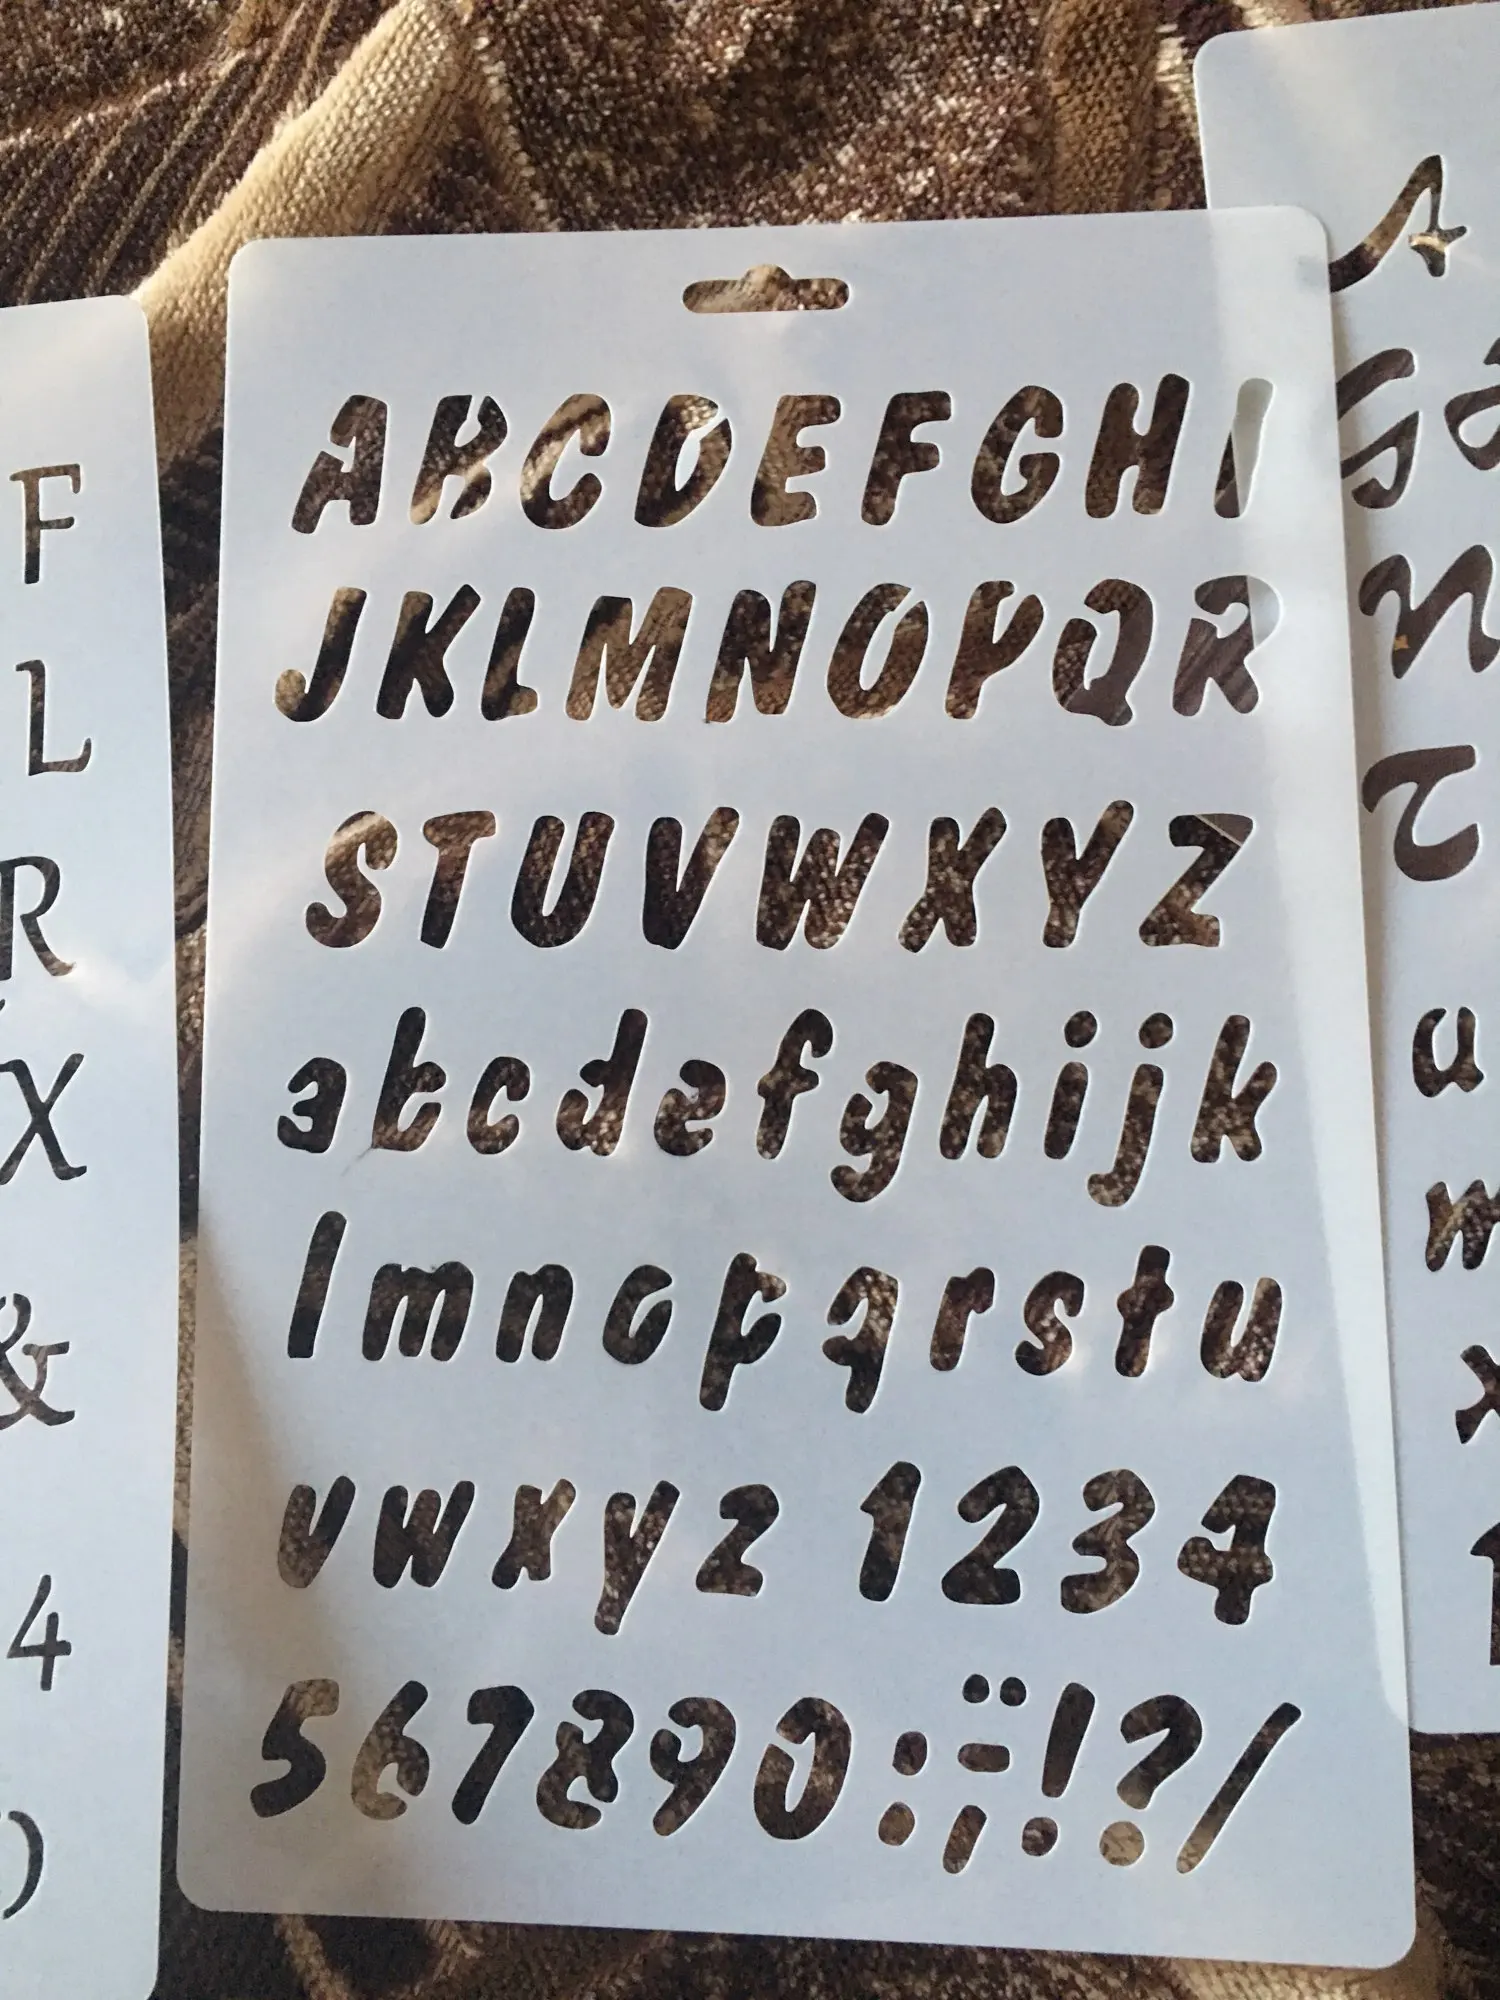 ABCDEFGHI
JKLMNOPQR
STUVWXYZ
abcdefghijk
lmnopqrstu
vwxyz 1234
567890:¨-,!?/
F
L
R
X
&
4
)
A
S
N
u
m
x